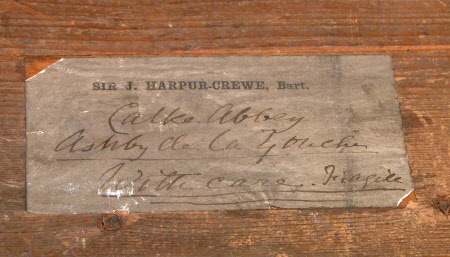 SIR J. HARPUR-CREWE, Bart.
Calke Abbey
Ashby de la Zouche
With care. Fragile